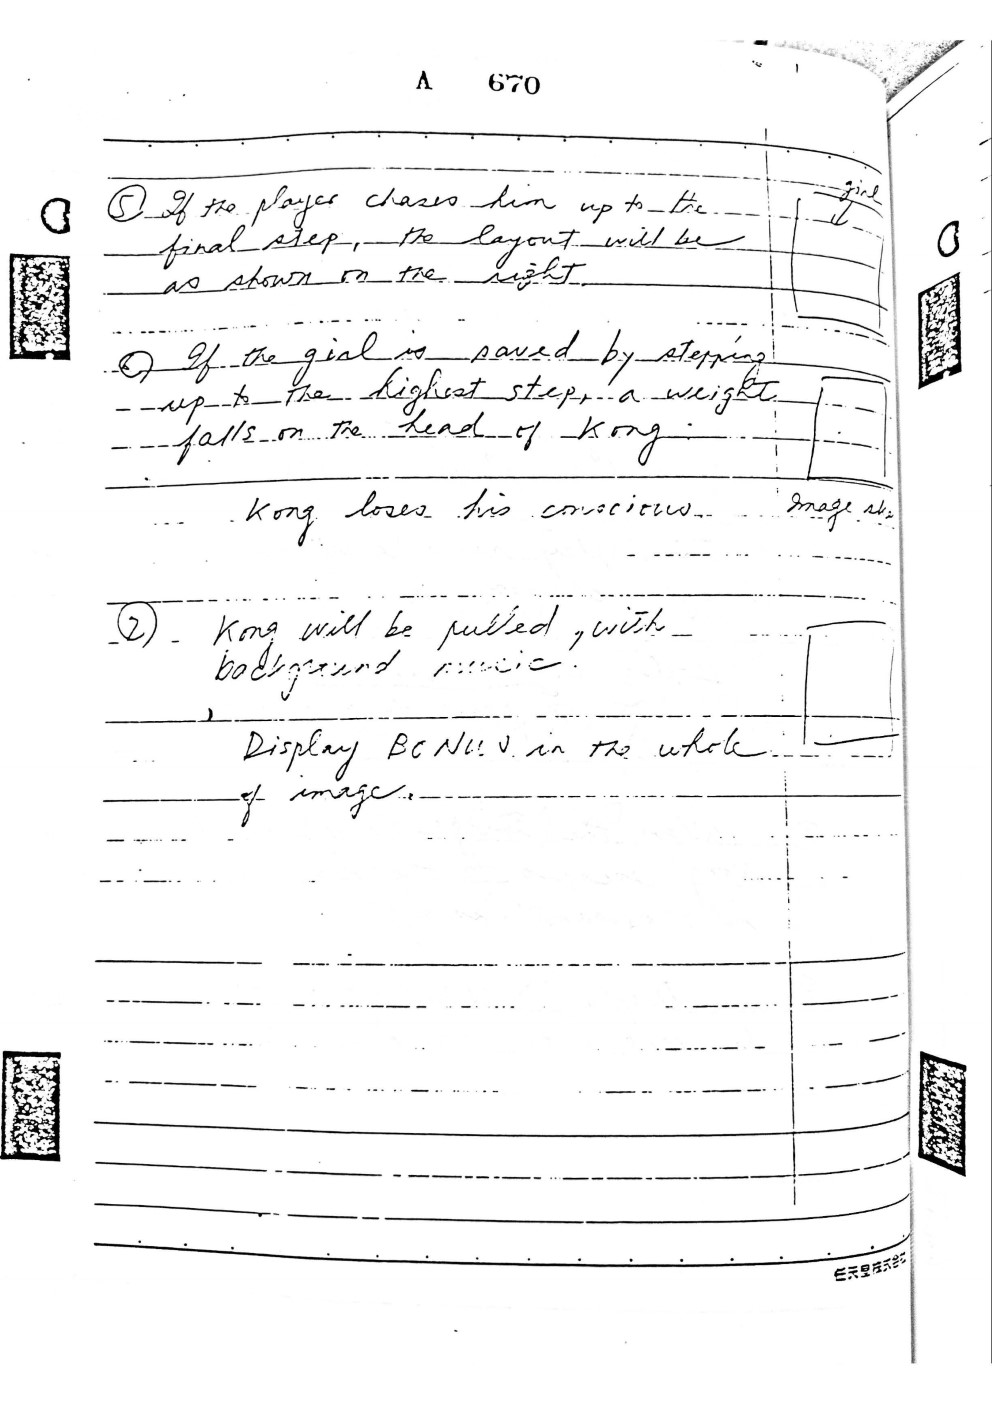 A 670
girl
⑤ If the player chases him up to the
final step, the layout will be
as shown on the right.
⑥ If the girl is saved by stepping
up to the highest step, a weight
falls on the head of Kong.
Kong loses his conscious
Image
⑦ Kong will be pulled, with
background music.
Display BONUS in the whole
of image.
任天堂株式会社